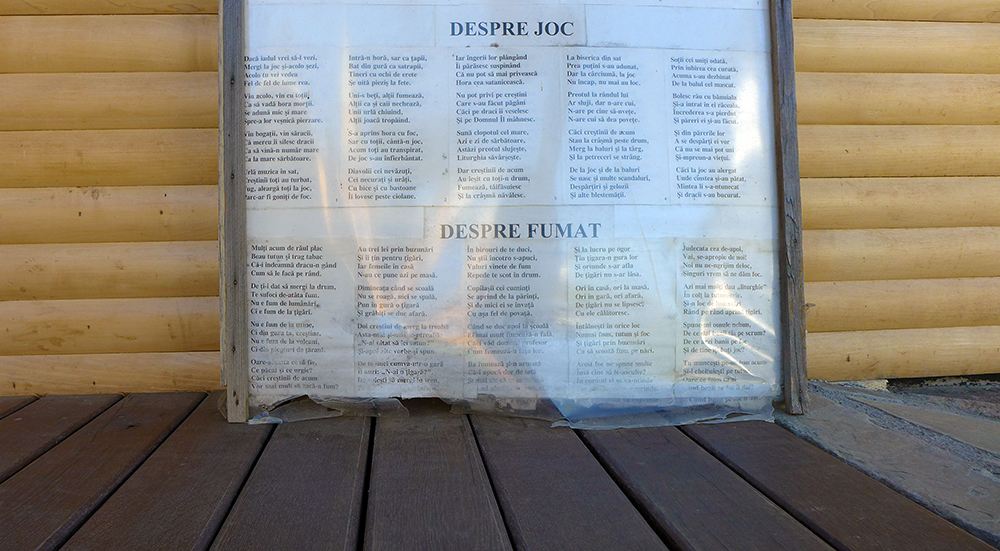 DESPRE JOC
Dacă iadul vrei să-l vezi,
Mergi la joc și-acolo șezi,
Acolo tu vei vedea
Fel de fel de lume rea.
Vin acolo, vin cu toții,
Ca să vadă hora morții.
Se adună mic și mare
Spre-a lor veșnică pierzare.
Vin bogații, vin săracii,
Că mereu îi silesc dracii
Ca să vină-n număr mare
Ca la mare sărbătoare.
Urlă muzica în sat,
Creștinii toți au turbat,
Fug, aleargă toți la joc,
Parc-ar fi goniți de foc.
Intră-n horă, sar ca țapii,
Bat din gură ca satrapii,
Tineri cu ochi de erete
Se uită pieziș la fete.
Unii-s beți, alții fumează,
Alții ca și caii nechează,
Unii urlă chiuind,
Alții joacă tropăind.
S-a aprins hora cu foc,
Sar cu toții, cântă-n joc,
Acum toți au transpirat,
De joc s-au înfierbântat.
Diavolii cei nevăzuți,
Cei necurați și urâți,
Cu bice și cu bastoane
Îi lovesc peste ciolane.
Iar îngerii lor plângând
Îi părăsesc suspinând
Că nu pot să mai privească
Hora cea satanicească.
Nu pot privi pe creștini
Care s-au făcut păgâni
Căci pe draci îi veselesc
Și pe Domnul Îl mâhnesc.
Sună clopotul cel mare,
Azi e zi de sărbătoare,
Astăzi preotul slujește,
Liturghia săvârșește.
Dar creștinii de acum
Au ieșit cu toți-n drum,
Fumează, tăifăsuiesc
Și la crâșmă năvălesc.
La biserica din sat
Prea puțini s-au adunat,
Dar la cârciumă, la joc
Nu încap, nu mai au loc.
Preotul la rândul lui
Ar sluji, dar n-are cui,
N-are pe cine să-nvețe,
N-are cui să dea povețe.
Căci creștinii de acum
Stau la crâșmă peste drum,
Merg la baluri și la târg,
Și la petreceri se strâng.
De la joc și de la baluri
Se nasc și multe scandaluri,
Despărțiri și gelozii
Și alte blestemății.
Soții cei uniți odată,
Prin iubirea cea curată,
Acuma s-au dezbinat
De la balul cel mascat.
Bolesc rău cu bănuiala
Și-a intrat în ei răceala,
Încrederea s-a pierdut
Și păreri ei și-au făcut.
Și din părerile lor
A se despărți ei vor
Că nu se mai pot uni
Și-mpreun-a viețui.
Căci la joc au alergat
Unde cinstea și-au pătat,
Mintea li s-a-ntunecat
Și dracii s-au bucurat.
DESPRE FUMAT
Mulți acum de răul plac
Beau tutun și trag tabac
Că-i îndeamnă dracu-n gând
Cum să le facă pe rând.
De ți-i dat să mergi la drum,
Te sufoci de-atâta fum.
Nu e fum de lumânări,
Ci e fum de la țigări.
Nu e fum de la tămâie,
Ci din gura ta, creștine,
Nu e fum de la vulcani,
Ci din plugari de țărani.
Oare-a ce să fie,
Ce păcat și ce urgie?
Căci creștinii de acum
Vor mai mult să tacă-n fum?
Au trei lei prin buzunări
Și îi țin pentru țigări,
Iar femeile în casă
N-au ce pune azi pe masă.
Dimineața când se scoală
Nu se roagă, nici se spală,
Pun în gură o țigară
Și grăbiți se duc afară.
Doi creștini de merg la treabă
„N-ai uitat să iei tutun?”
Și-apoi alte vorbe-și spun.
În birouri de te duci,
Nu știi încotro s-apuci,
Valuri vinete de fum
Repede te scot în drum.
Copilașii cei cuminți
Se aprind de la părinți,
Și de mici ei se învață
Cu așa fel de povață.
Când se duc apoi la școală
Ei mai mult fumează-n fală,
Și la lucru pe ogor
Țin țigara-n gura lor
Și oriunde s-ar afla
De țigări nu s-ar lăsa.
Ori în casă, ori la masă,
Ori în gară, ori afară,
De țigări nu se lipsesc
Cu ele călătoresc.
Întâlnești în orice loc
Numai fum, tutun și foc
Și țigări prin buzunări
Ca să scoată fum pe nări.
Judecata cea de-apoi,
Vai, se-apropie de noi!
Noi nu ne-ngrijim deloc,
Singuri vrem să ne dăm foc.
Rând pe rând aprinzi țigări.